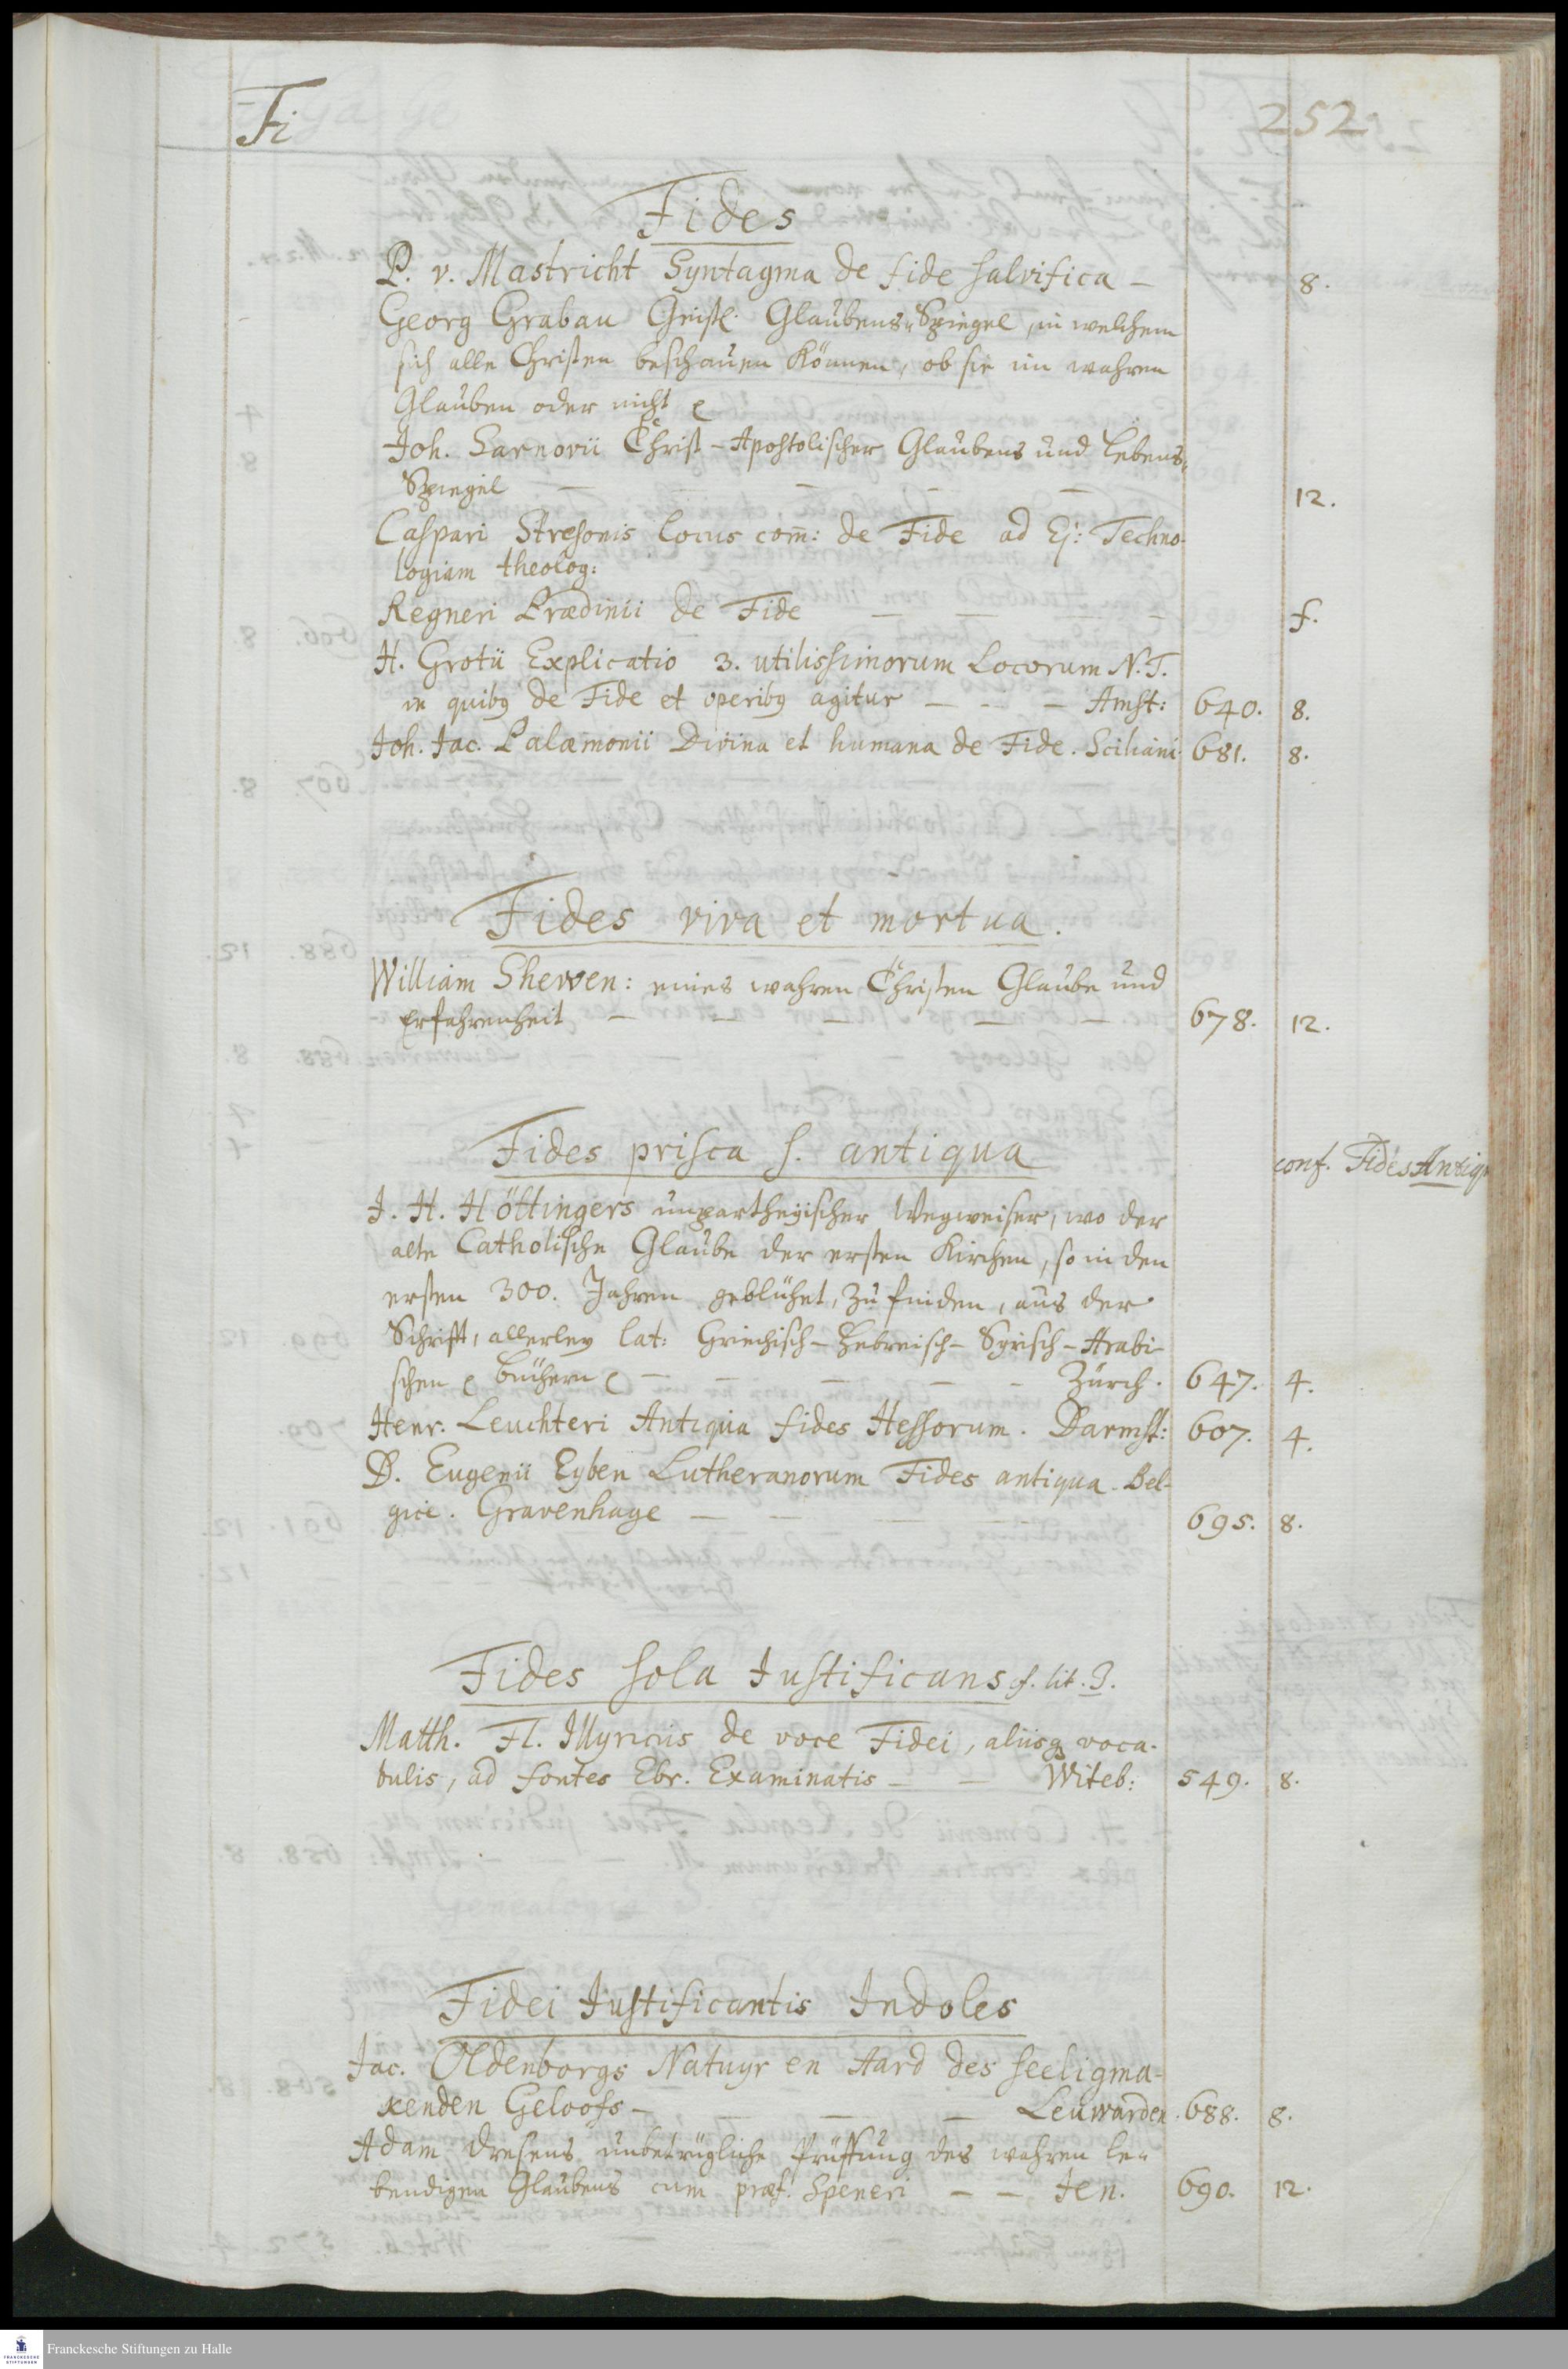 Fi
252
Fides
P. v. Mastricht Syntagma de fide salvifica – 8.
Georg Grabau Geistl. Glaubens-Spiegel, in welchem
sich alle Christen beschauen können, ob sie im wahren
Glauben oder nicht
Joh. Sarnovii Christ-Apostolischer Glaubens und Lebens-
Spiegel – – – – – 12.
Caspari Stresonis locus com̄: de Fide ad Ej: Techno-
logiam theolog:
Regneri Prædinii de Fide – – – f.
H. Grotii Explicatio 3. utilissimorum Locorum N.T.
in quibq de Fide et operibq agitur – – – Amst: 640. 8.
Joh. Jac. Palæmonii Divina et humana de Fide. 681. 8.
Fides viva et mortua.
William Shewen: eines wahren Christen Glaube und
Erfahrenheit – – – – – 678. 12.
Fides prisca s. antiqua
conf. Fides Antiq
J. H. Höttingers unpartheyischer Wegweiser, wo der
alte Catholische Glaube der ersten Kirchen, so in den
ersten 300. Jahren geblühet, zu finden, aus der
Schrifft, allerley lat: Griechisch-Hebreisch-Syrisch-Arabi-
schen Büchern – – – – – Zürch. 647. 4.
Henr. Leuchteri Antiqua fides Hessorum. Darmst: 607. 4.
D. Eugenii Eyben Lutheranorum Fides antiqua. Bel-
gice. Gravenhage – – – – 695. 8.
Fides sola Justificans cf. lit. J.
Matth. Fl. Illyricus de voce Fidei, aliisq voca-
bulis, ad fontes Ebr. Examinatis – – Witeb: 549. 8.
Fidei Justificantis Indoles
Jac. Oldenborgs Natuyr en Aard des seeligma-
kenden Geloofs – – – – Leuwarden. 688. 8.
Adam Dresens unbetrügliche Prüffung des wahren le-
bendigen Glaubens cum præf. Speneri – – Jen. 690. 12.
Franckesche Stiftungen zu Halle
FRANCKESCHE
STIFTUNGEN